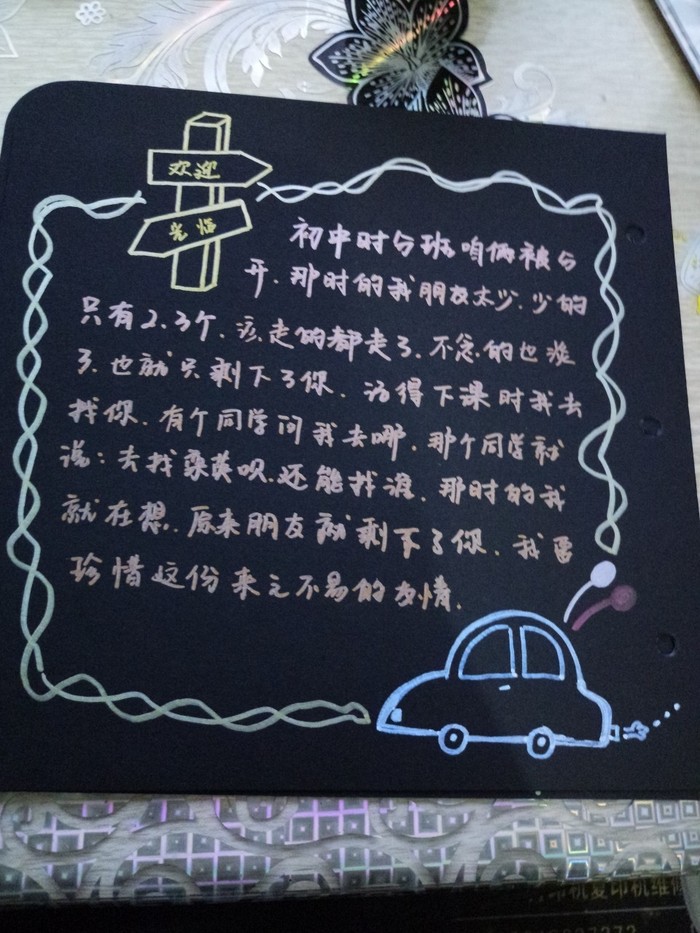 欢迎
光临
初中时分班咱俩被分
开.那时的我朋友太少.少的
只有2.3个.该走的都走了.不念的也淡
了.也就只剩下了你.记得下课时我去
找你.有个同学问我去哪.那个同学就
说:去找栾英呗.还能找谁.那时的我
就在想.原来朋友就剩下了你.我要
珍惜这份来之不易的友情.
印机复印机维修